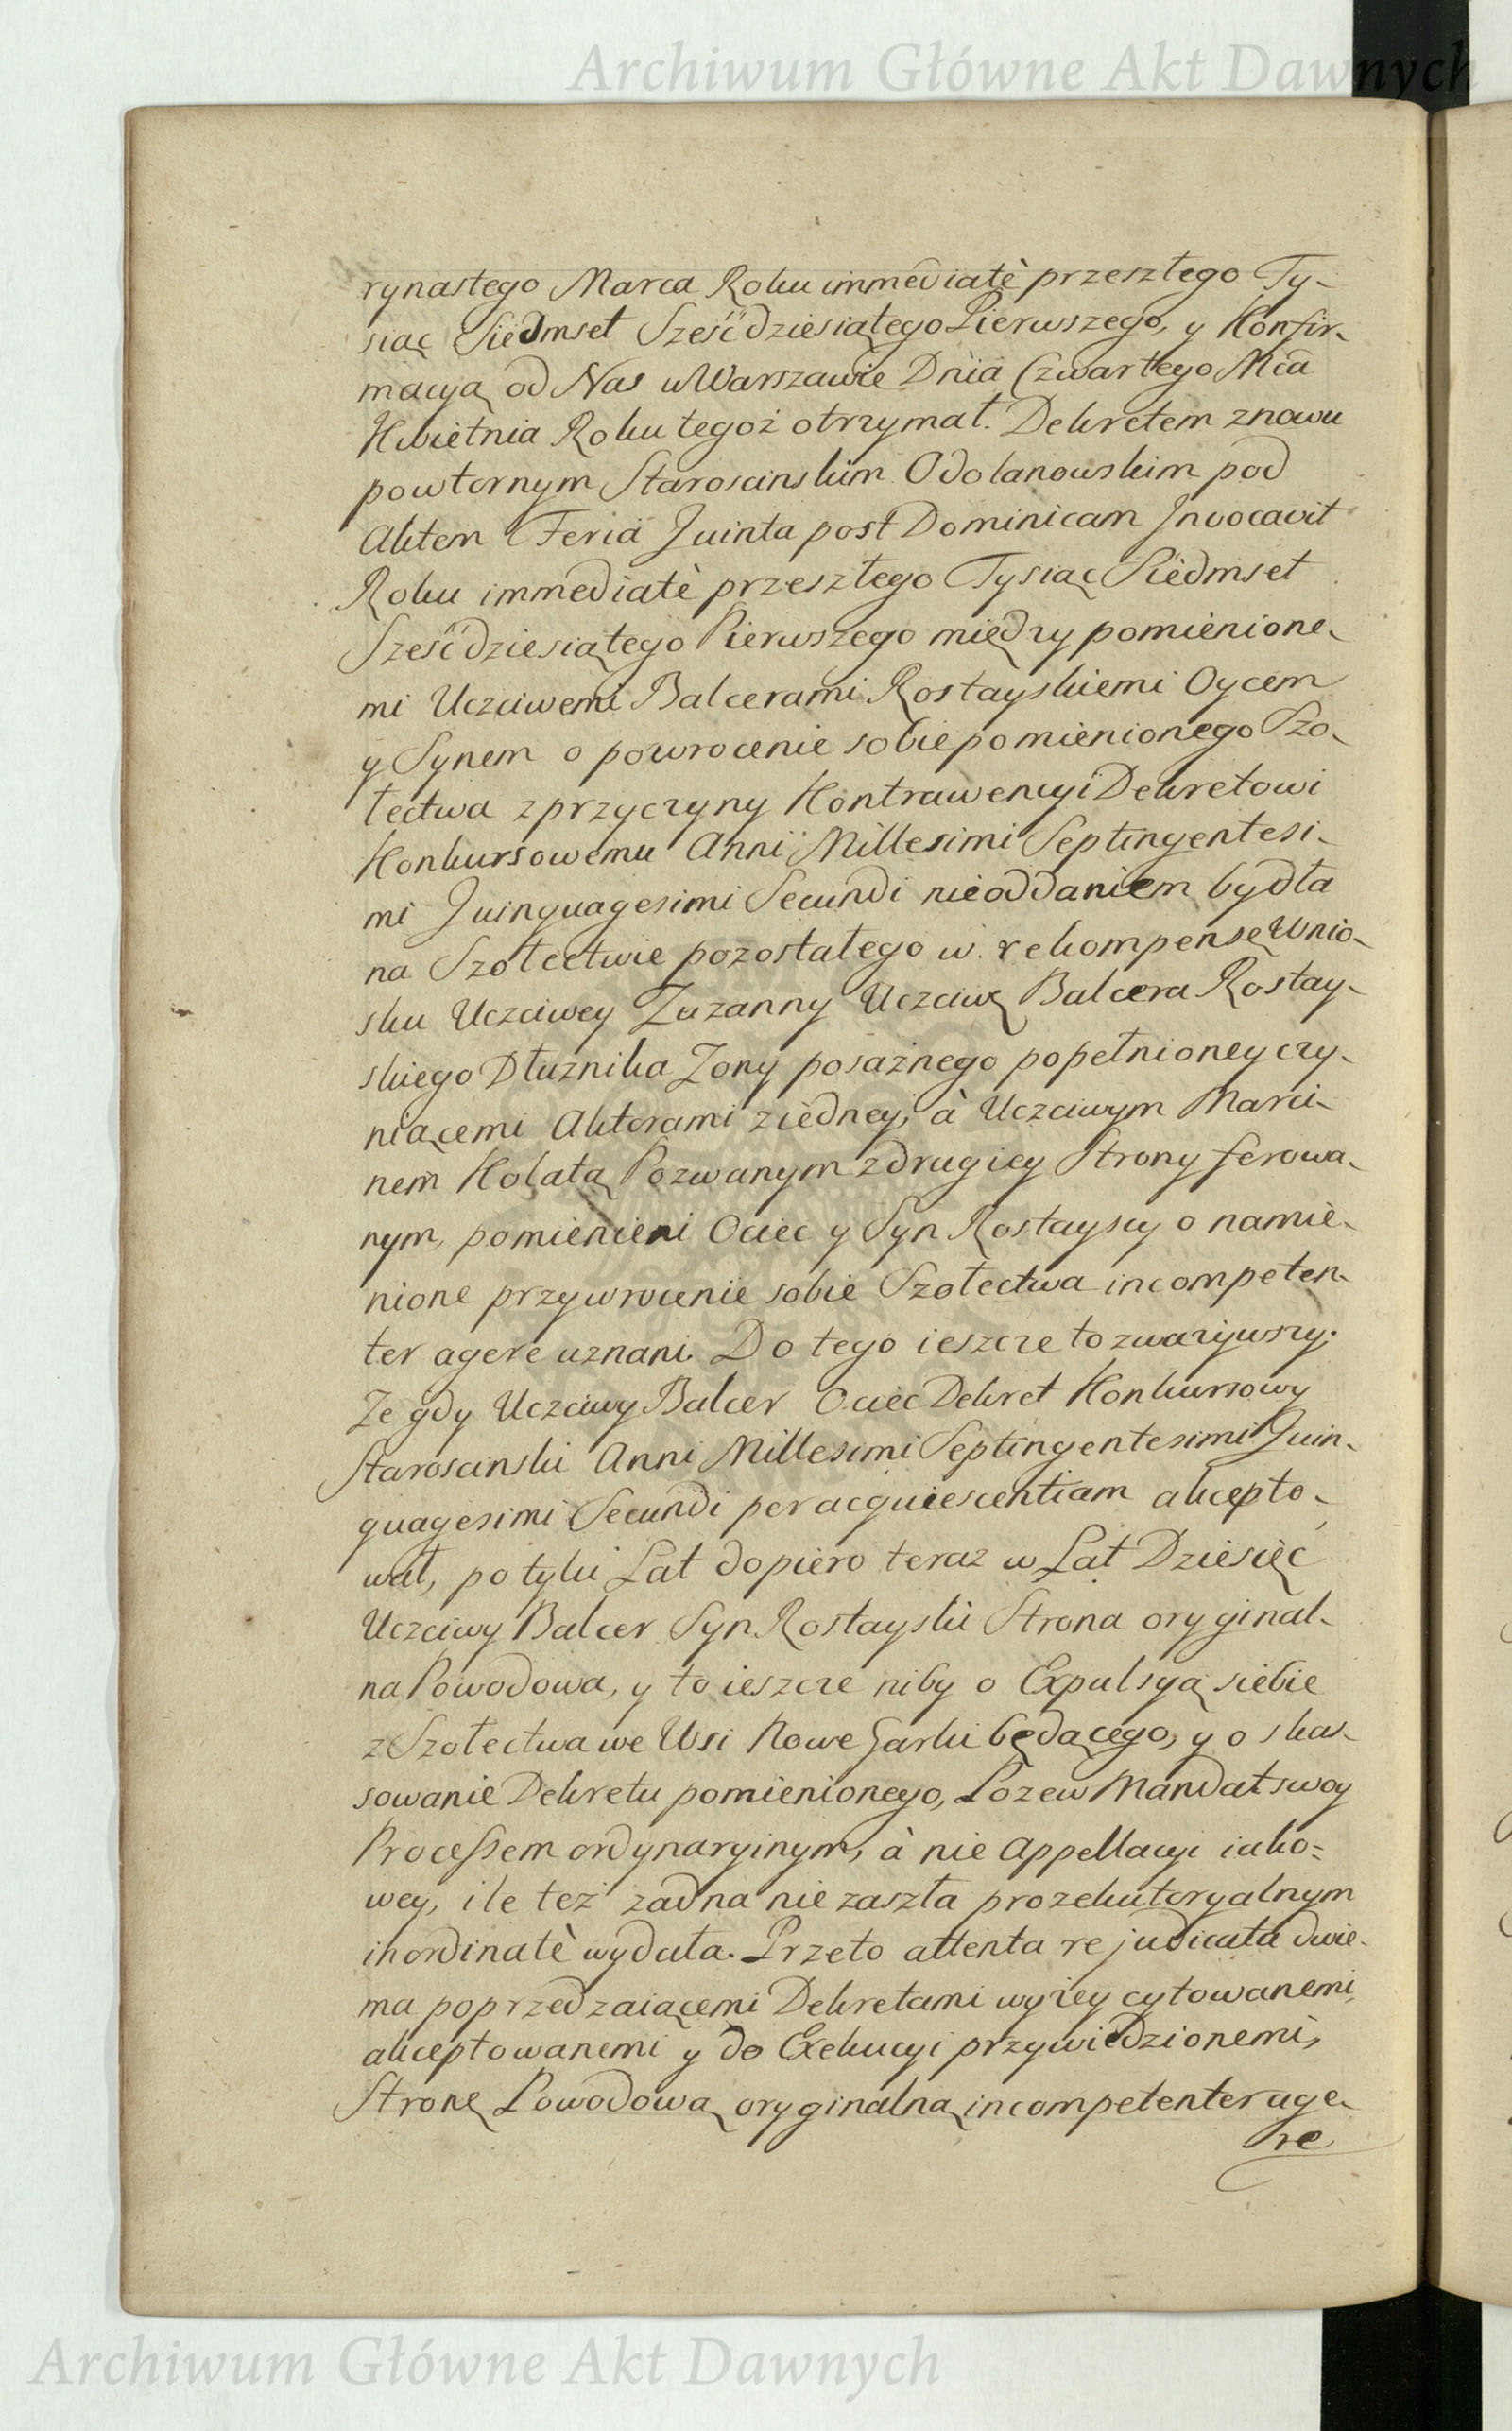 Archiwum Główne Akt Dawnych
rynastego Marca Roku immediatè przeszłego Ty-
siąc Siedmset Sześćdziesiątego Pierwszego, y Konfir-
macyą od Nas w Warszawie Dnia Czwartego Mca
Kwietnia Roku tegoż otrzymał. Dekretem znowu
powtornym Staroscinskim Odolanowskim pod
Aktem Feria Quinta post Dominicam Invocavit
Roku immediatè przeszłego Tysiąc Siedmset
Sześćdziesiątego Pierwszego między pomienione-
mi Uczciwemi Balcerami Rostayskiemi Oycem
y Synem o powrocenie sobie pomienionego Szo-
łectwa z przyczyny Kontrawencyi Dekretowi
Konkursowemu Anni Millesimi Septingentesi-
mi Quinquagesimi Secundi nieoddaniem bydła
na Szołectwie pozostałego w rekompensę Wnio-
sku Uczciwey Zuzanny Uczciwę Balcera Rostay-
skiego Dłuznika Zony posażnego popełnioney czy-
niącemi Aktorami z iedney, à Uczciwym Marci-
nem Kolatą Pozwanym z drugiey Strony ferowa-
nym, pomienieni Ociec y Syn Rostayscy o namie-
nione przywrocenie sobie Szołectwa incompeten-
ter agere uznani. Do tego ieszcze to zwazywszy:
Ze gdy Uczciwy Balcer Ociec Dekret Konkursowy
Staroscinski Anni Millesimi Septingentesimi Quin-
quagesimi Secundi per acquiescentiam akcepto-
wał, po tylu Lat dopiero teraz w Lat Dziesięć
Uczciwy Balcer Syn Rostayski Strona oryginal-
na Powodowa, y to ieszcze niby o Expulsyą siebie
z Szołectwa we Wsi Nowe Garki będącego, y o skas-
sowanie Dekretu pomienionego, Pozew Mandat swoy
Processem ordynaryinym, à nie Appellacyi iako-
wey, ile też zadna nie zaszła prozekutoryalnym
inordinatè wydała. Przeto attenta re judicata dwie-
ma poprzedzaiącemi Dekretami wyżey cytowanemi,
akceptowanemi y do Exekucyi przywiedzionemi,
Stronę Powodową oryginalną incompetenter age-
re
Archiwum Główne Akt Dawnych